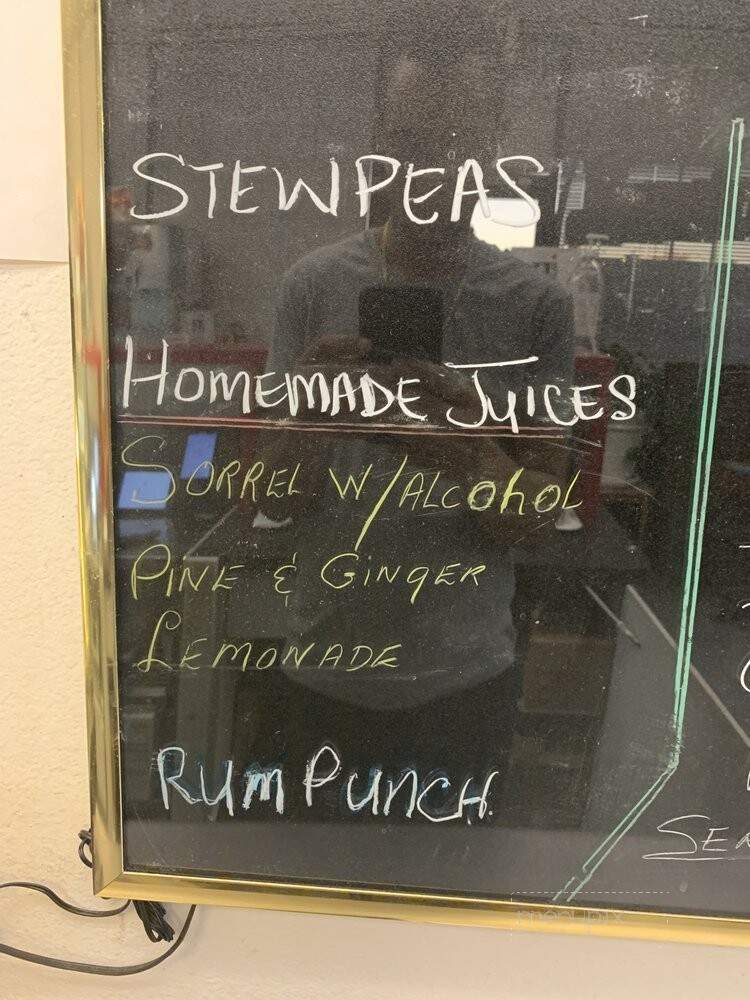 STEWPEAS
HOMEMADE JUICES
SORREL W/ALCOHOL
PINE & GINGER
LEMONADE
RUM PUNCH.